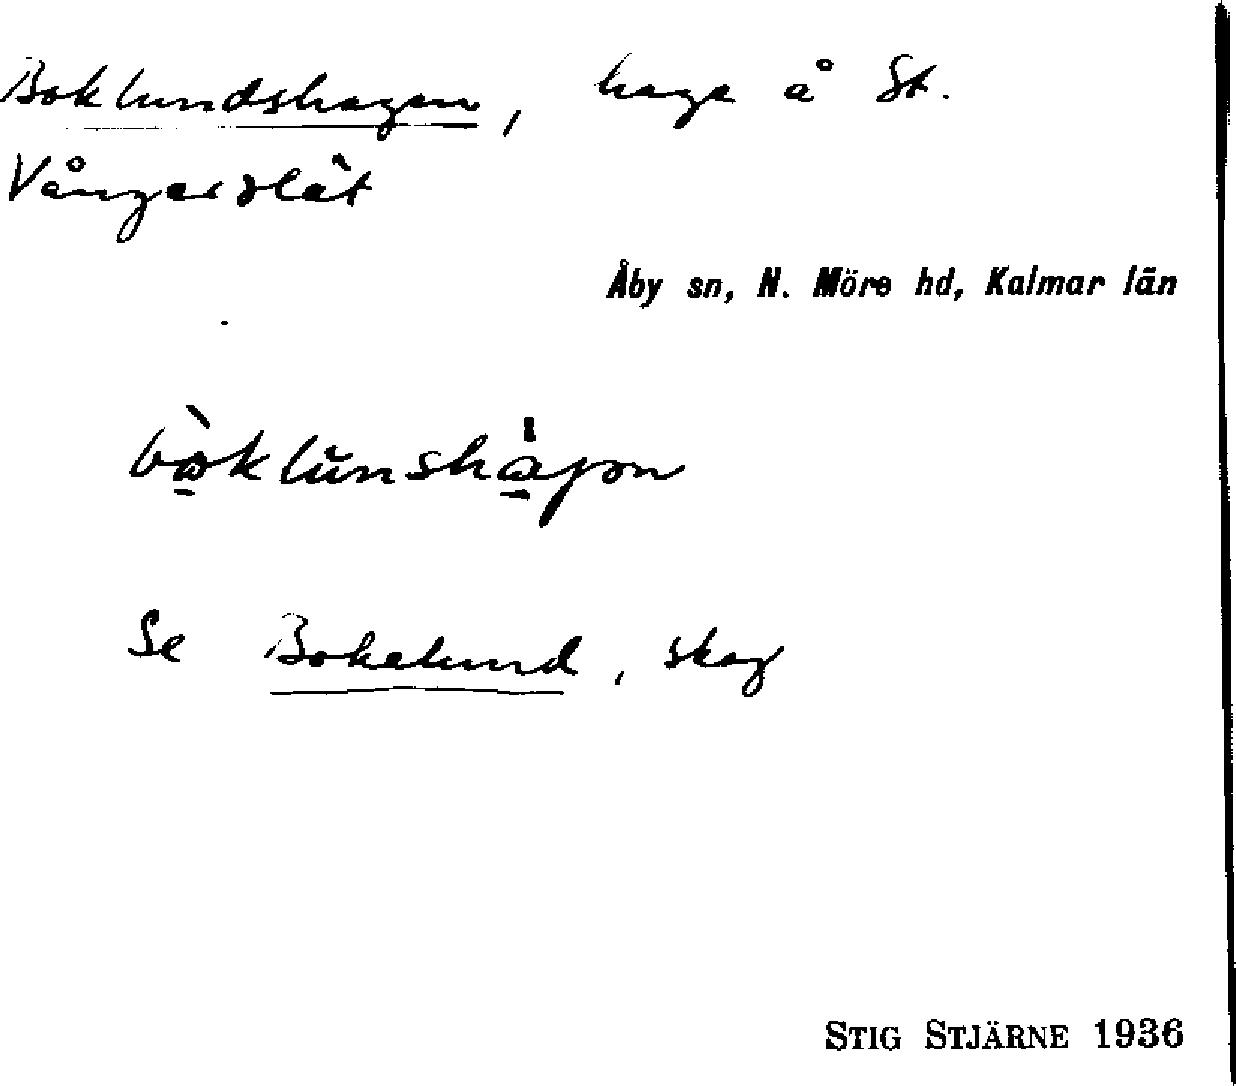 Boklundshagen, hage å St.
Vångerslät
Åby sn, N. Möre hd, Kalmar län
Se Bokelund, skog
STIG STJÄRNE 1936